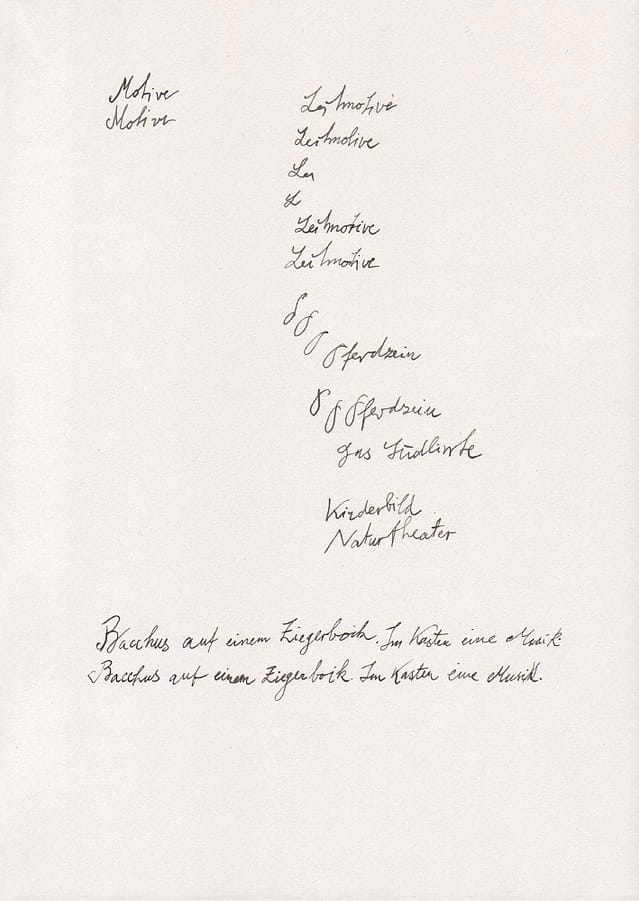 Motive
Motive
Leitmotive
Leitmotive
Lei
L
Leitmotive
Leitmotive
Pferdzein
Pferdzein
das
Kinderbild
Naturtheater
Bacchus auf einem Ziegerbock. Im Kasten eine Musik
Bacchus auf einem Ziegerbock. Im Kasten eine Musik.